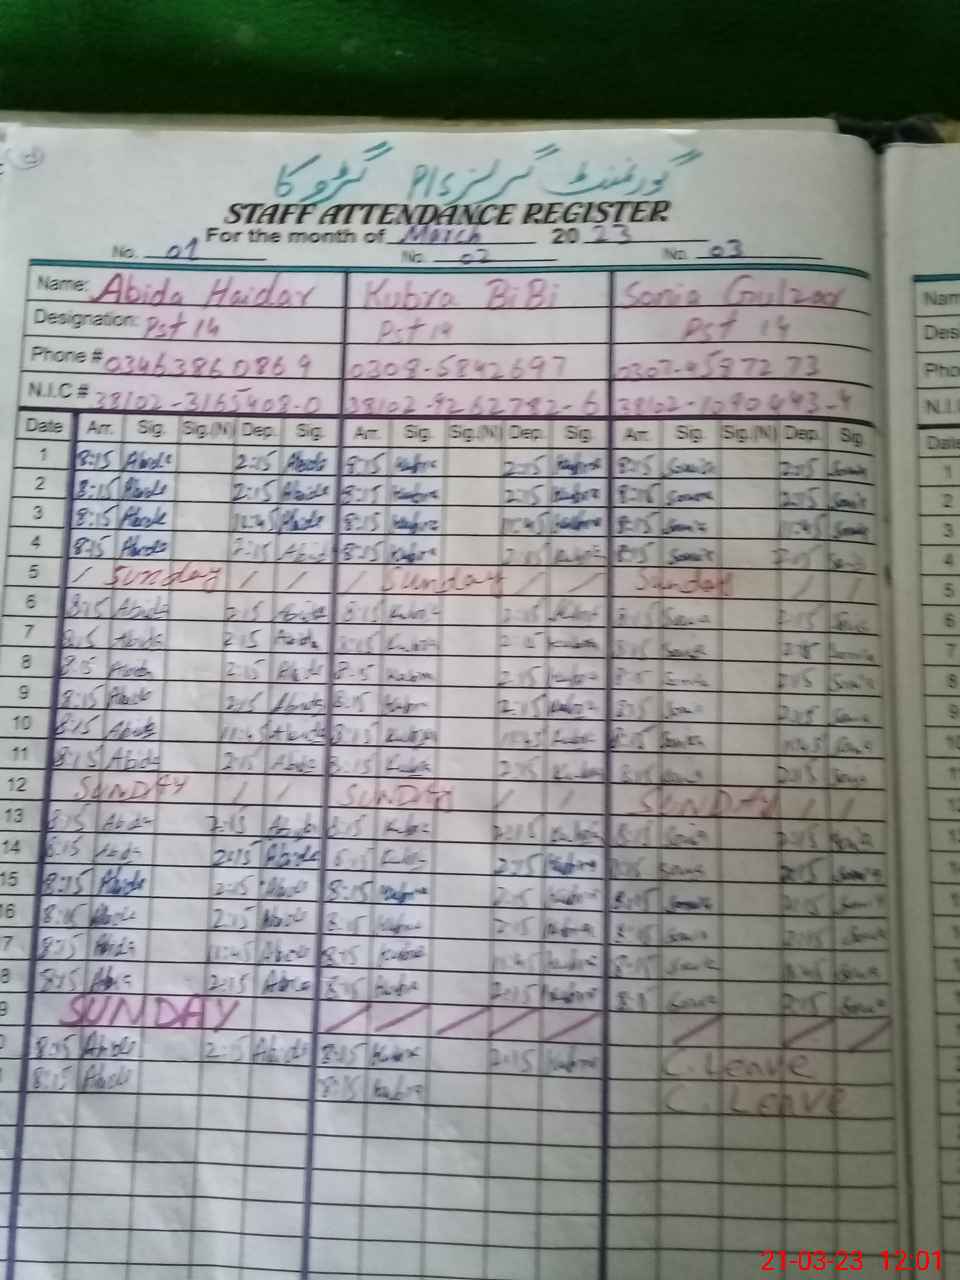 گورنمنٹ گرلز P/S گڑوکا
STAFF ATTENDANCE REGISTER
For the month of March 2023
No. 01 No. 02 No. 03
Name: Abida Haidar Kubra BiBi Sonia Gulzar
Designation: Pst 14 Pst 14 Pst 14
Phone # 03463860869 0308-5842697 0307-4587273
N.I.C # 38102-3165408-0 38102-9262782-6 38102-1090443-4
Date Arr. Sig. Sig.(N) Dep. Sig. Arr. Sig. Sig.(N) Dep. Sig. Arr. Sig. Sig.(N) Dep. Sig
1 8:15 Abida 2:15 Abida 8:15 Kubra 2:15 Kubra 8:15 Sonia 2:15 Sonia
2 8:15 Abida 2:15 Abida 8:15 Kubra 2:15 Kubra 8:15 Sonia 2:15 Sonia
3 8:15 Abida 11:45 Abida 8:15 Kubra 11:45 Kubra 8:15 Sonia 11:45 Sonia
4 8:15 Abida 2:15 Abida 8:15 Kubra 2:15 Kubra 8:15 Sonia 2:15 Sonia
5 / Sunday / / / Sunday / / Sunday / /
6 8:15 Abida 2:15 Abida 8:15 Kubra 2:15 Kubra 8:15 Sonia 2:15 Sonia
7 8:15 Abida 2:15 Abida 8:15 Kubra 2:15 Kubra 8:15 Sonia 2:15 Sonia
8 8:15 Abida 2:15 Abida 8:15 Kubra 2:15 Kubra 8:15 Sonia 2:15 Sonia
9 8:15 Abida 2:15 Abida 8:15 Kubra 2:15 Kubra 8:15 Sonia 2:15 Sonia
10 8:15 Abida 11:45 Abida 8:15 Kubra 11:45 Kubra 8:15 Sonia 11:45 Sonia
11 8:15 Abida 2:15 Abida 8:15 Kubra 2:15 Kubra 8:15 Sonia 2:15 Sonia
12 SUNDAY / / SUNDAY / / SUNDAY / /
13 8:15 Abida 2:15 Abida 8:15 Kubra 2:15 Kubra 8:15 Sonia 2:15 Sonia
14 8:15 Abida 2:15 Abida 8:15 Kubra 2:15 Kubra 8:15 Sonia 2:15 Sonia
15 8:15 Abida 2:15 Abida 8:15 Kubra 2:15 Kubra 8:15 Sonia 2:15 Sonia
16 8:15 Abida 2:15 Abida 8:15 Kubra 2:15 Kubra 8:15 Sonia 2:15 Sonia
7 8:15 Abida 11:45 Abida 8:15 Kubra 11:45 Kubra 8:15 Sonia 11:45 Sonia
8 8:15 Abida 2:15 Abida 8:15 Kubra 2:15 Kubra 8:15 Sonia 2:15 Sonia
9 SUNDAY / / / / / / / /
8:15 Abida 2:15 Abida 8:15 Kubra 2:15 Kubra C. Leave
8:15 Abida 8:15 Kubra C. Leave
21-03-23 12:01